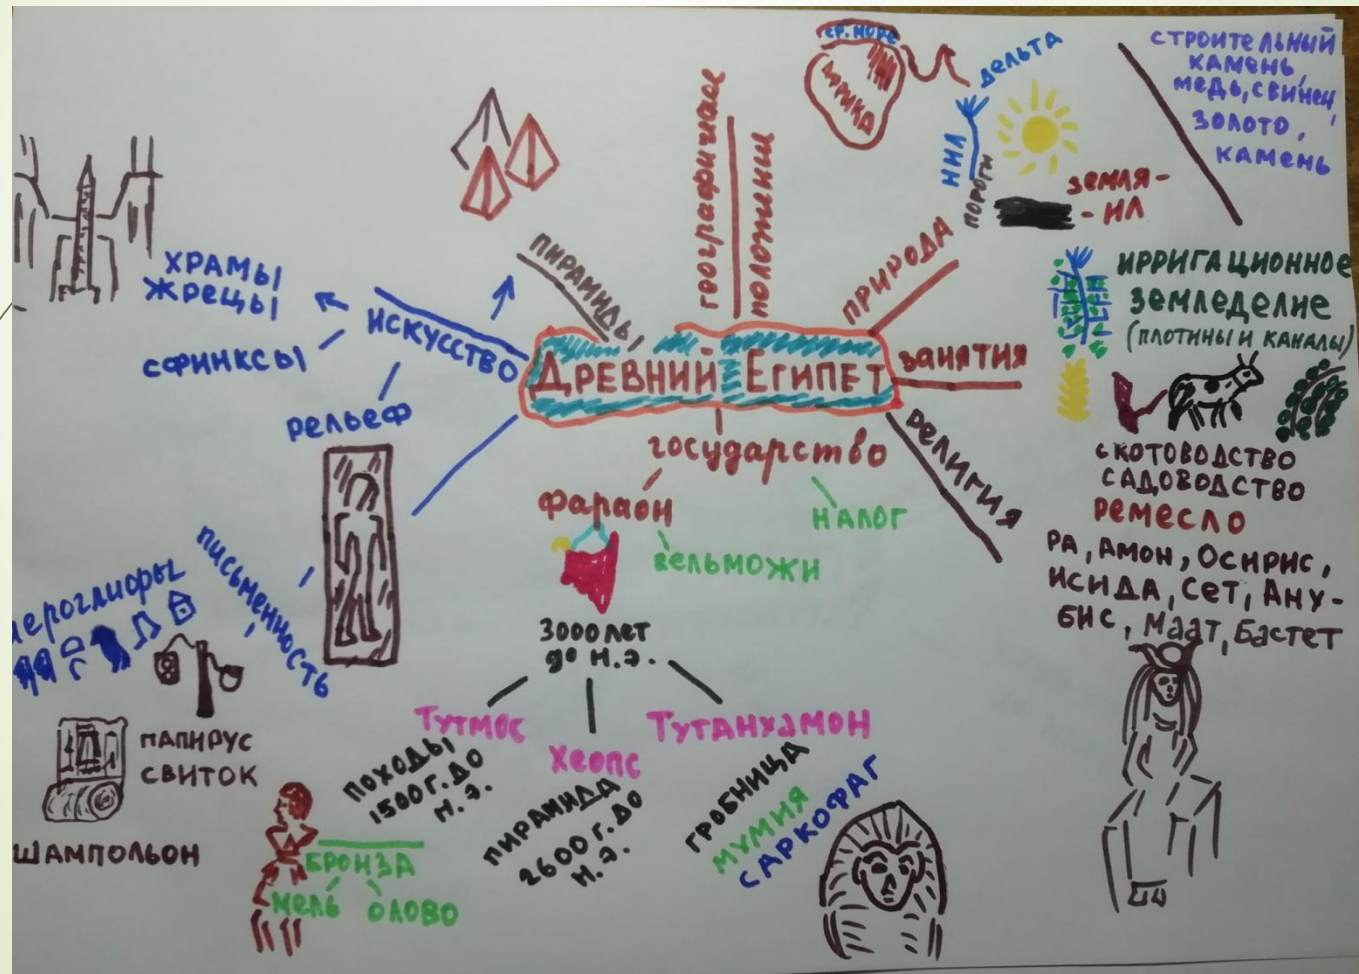 ДРЕВНИЙ ЕГИПЕТ
ПИРАМИДЫ
географичкое
положкини
СР. МОРЕ
АФРИКА
ДЕЛЬТА
НИЛ
ПОРОГИ
ЗЕМЛЯ-
-ИЛ
ПРИРОДА
СТРОИТЕЛЬНЫЙ
КАМЕНЬ,
МЕДЬ, СВИНЕЦ,
ЗОЛОТО,
КАМЕНЬ
занятия
ИРРИГАЦИОННОЕ
ЗЕМЛЕДЕЛИЕ
(ПЛОТИНЫ И КАНАЛЫ)
СКОТОВОДСТВО
САДОВОДСТВО
РЕМЕСЛО
РЕЛИГИЯ
РА, АМОН, ОСИРИС,
ИСИДА, СЕТ, АНУ-
БИС, Маат, Бастет
государство
НАЛОГ
фараон
вельможи
3000 ЛЕТ
до н.э.
ТУТМОС
ПОХОДЫ
1500 Г. ДО
Н.Э.
ХЕОПС
ПИРАМИДА
2600 Г. ДО
Н.Э.
ТУТАНХАМОН
ГРОБНИЦА
МУМИЯ
САРКОФАГ
ИСКУССТВО
ХРАМЫ
ЖРЕЦЫ
СФИНКСЫ
рельеф
письменность
иероглифы
ПАПИРУС
СВИТОК
ШАМПОЛЬОН
БРОНЗА
МЕДЬ ОЛОВО